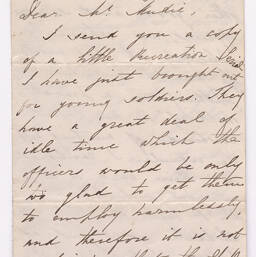 Dear Mr. Mudie,
I send you a copy
of a little Recreation Series
I have just brought out
for young soldiers. They
have a great deal of
idle time which the
officers would be only
too glad to get them
to employ harmlessly,
and therefore it is not